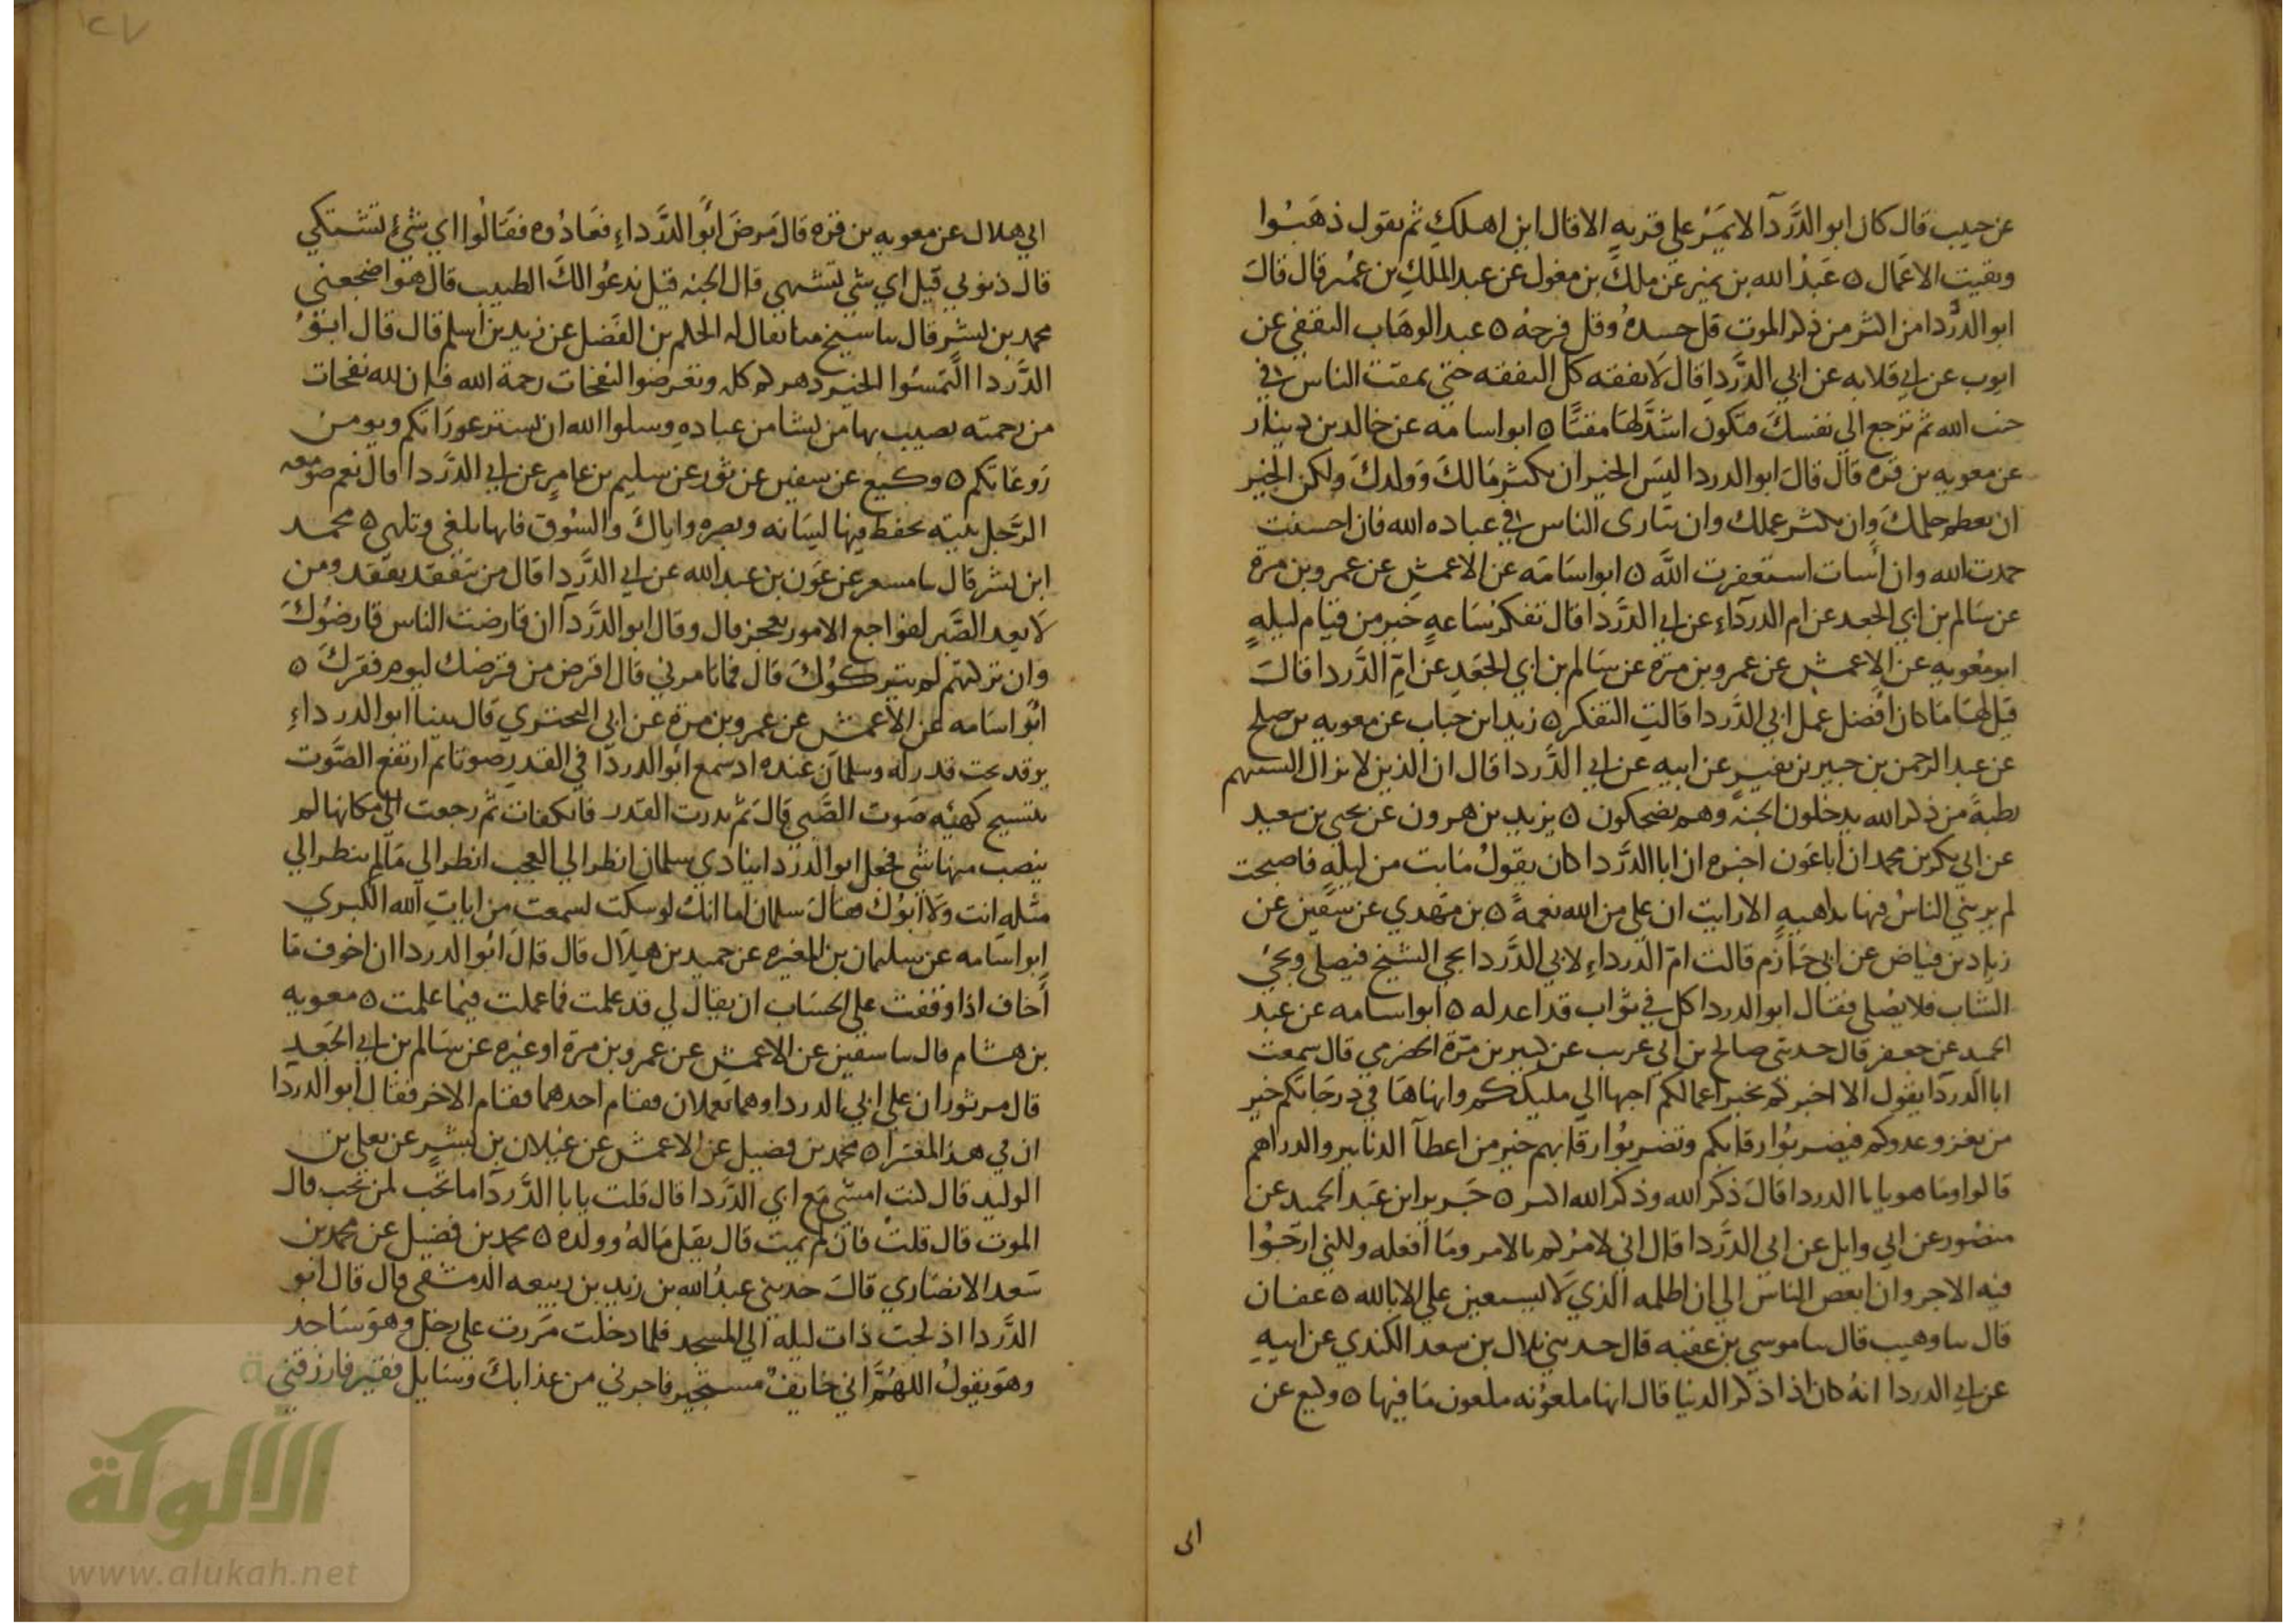 عن حبيب قال كان ابو الدَّردآ لا يمَرُّ على قريهٍ الا قال اين اهلكِ ثم يقول ذهَبُوا
وبقيت الاعَمال ه عَبدُ الله بن نمير عَن ملكَ بن مغول عن عبد الملكِ بن عمُير قال قالَ
ابو الدَّردا من اكثر من ذكر الموت قل حسدهُ وقل فرحهُ ه عبد الوهَاب الثقفي عن
ايوب عن ابي قلابه عن ابي الدَّردِا قال لاَ تفقه كل الفقه حتى تمقت الناس في
جنب الله ثم ترجع الى نفسكَ فتكون اشدَّ لهَا مقتًا ه ابو اسامه عن خالد بن دينار
عن معويه بن قره قال قالَ ابو الدردا ليسَ الخير ان يكثر مَالكَ وَولدكَ ولكن الخير
ان يعظم حلمكَ وان يكثر عملك وان تبارى الناس في عباده الله فان احسنت
حمدت الله وان أسات استغفرت اللهَ ه ابو اسَامَه عن الاعمشِ عن عمرو بن مرة
عن سَالم بن ابي الجعد عن ام الدردَاءِ عن ابي الدَّردا قال تفكر سَاعهٍ خير من قيام ليلهٍ
ابو معُويهِ عن الاعمش عن عمرو بن مرّة عن سَالم بن ابي الجعَدِ عن امِّ الدَّردا قالتَ
قيل لهَا مَا كان افضل عمل ابي الدَّردا قالتِ التفكر ه زيد ابن حباب عن معويه بن صلح
عن عبد الرحمن بن جبير بن نفيرٍ عن ابيه عن ابي الدَّردا قال ان الذين لا تزال السنتهم
رطبةً من ذكر الله يدخلون الجنه وهم يضحكون ه يزيد بن هرون عن يحيى بن سعيد
عن ابي بكر بن محمد ان أباعَون اخبره ان ابا الدَّردا كان يقولُ مَا بت من ليلهٍ فاصبحت
لم يرمني الناسُ فيها بداهيهِ الا رايت ان علي من الله نعمهً ه بن مهَدي عن سفين عن
زياد بن فياض عن ابي حَازم قالت امّ الدرداءِ لابي الدَّردا يجي الشيخ فيصلي ويجيُ
الشاب فلا يصُلي فقال ابو الدردا كل في ثوَاب قد اعد له ه ابو اسامه عن عبد
الحميد عن جعفر قال حدثني صالح بن ابي عريب عن كثير بن مرّة الحضرمي قال سمعت
ابا الدردَا يقول الا اخبركم بخير اعمالكم احبها الى مليككم وانماها في درجَاتكم خير
من تغزو عدوكم فيضربُوا رقابكم وتضربُوا رقابهم خير من اعطآ الدنانير والدراهم
قالوا ومَا هو يا با الدردا قالَ ذكر الله وذكر الله اكبر ه جَرير ابن عَبد الحميد عن
منصُور عن ابي وايل عن ابي الدَّردا قال اني لامرُكم بالامر ومَا افعله ولكني ارجُوا
فيه الاجر وان ابغض الناس الي ان اظلمه الذي لاَ يستعين علي الا بالله ه عفان
قال سا وهيب قال سا موسى بن عقبه قال حدثني بلال بن سعد الكندي عن ابيهِ
عن ابي الدردا انهُ كان اذا ذكر الدنيا قال انها ملعوُنه ملعون مَا فيها ه وكيع عن
الى
ابي هلال عن معويه بن قره قال مَرضَ ابُو الدَّرداءِ فعَادُوه فقَالُوا اي شيءٍ تشتكي
قال ذنوبي قيل اي شي تشتهي قال الجنه قيل ندعُو الكَ الطبيب قال هوَ اضجعني
محمد بن بشر قال سا شيخ منا يقال له الحكم بن الفضل عن زيد بن اسلم قال قال ابوُ
الدَّردا التمسُوا الخير دهركم كله وتعرضوا لنفحَات رحمة الله فان لله نفحات
من رحمته يصيب بها من يشا من عبادهِ وسلوا الله ان يستر عورَاتكم ويومن
رَوعَاتكم ه وكيع عن سفين عن ثور عن سليم بن عامرٍ عن ابي الدَّردا قال نعم صومعه
الرَّجل بيته يحفظ فيها لسَانه وبصره واياكَ والسُوق فانها تلغي وتلهي ه محمد
ابن بشر قال سا مسعر عن عَون بن عبد الله عن ابي الدَّردِا قال من يتفقد يفقد ومن
لا يعد الصَّبر لفواجع الامور يعجز قال وقال ابو الدَّردآ ان قارضت الناس قارضُوكَ
وان تركتهم لم يتركوُكَ قال فما تامرني قال اقرض من قرضك ليوم فقركَ ه
ابُو اسَامه عن الاعمش عن عمرو بن مرة عن ابي البحتري قال بينا ابو الدرداءِ
يوقد تحت قدر له وسلمان عنده اذ سمع ابو الدردآ في القدرِ صوتا ثم ارتفع الصَّوت
بتسبيح كهيئه صَوت الصَّبي قالَ ثم ندرت القدر فانكفات ثم رجعت الى مكانها لم
ينصب منها شي فجعل ابو الدردا ينادي سلمان انظر الي العجب انظر الي مَا لم ينظر الي
مثله انت ولاَ ابوُك فقالَ سلمان اما انك لو سكت لسمعت من ايات الله الكبري
ابو اسَامه عن سليمان بن المغيره عن حميد بن هلاَل قال قالَ ابُو الدردا ان اخوف مَا
أخاف اذا وقفت على الحسَاب ان يقال لي قد علمت فما عملت فيما علمت ه معويه
بن هشام قال سا سفين عن الاعمش عن عمرو بن مرة او غيره عن سَالم بن ابي الجَعد
قال مر ثوران على ابي الدردا وهما يعملان فقام احدهما فقام الاخر فقال ابو الدردآ
ان في هذا لمعتبرا ه محمد بن فضيل عن الاعمش عن غيلان بن بشرٍ عن يعلى بن
الوليد قال كنت امشي مَع ابي الدَّردا قال قلت يا با الدَّردآ ما تحب لمن تحب قال
الموت قال قلت فان لم يمت قال يقل مَالهُ وولده ه محمد بن فضيل عن محمد بن
سَعد الانصَاري قالَ حدثني عبدُ الله بن زيد بن ربيعه الدمشقي قال قال ابو
الدَّردا ادلجت ذات ليله الي المسجد فلما دخلت مَررت على رجل وهوَ سَاجد
وهوَ يقولُ اللهُمَّ اني خايفٌ مستجير فاجرني من عذابكَ وسَايل فقير فارزقني
الألوكة
www.alukah.net